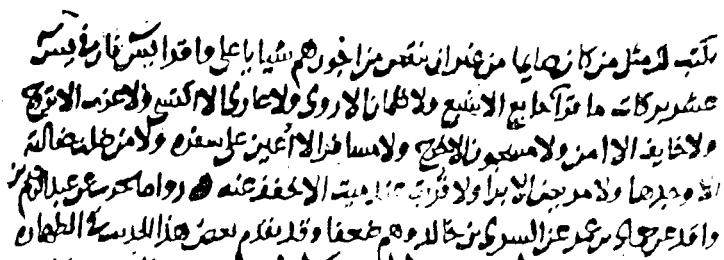 يكتب له مثل من كان صايما من غير ان ينقص من اجورهم شيا يا علي واقرا يس فان في يس
عشر بركات ما قرا جايع الا شبع ولا ظمان الا روي ولا عاري الا اكتسي ولا عزب الا تزوج
ولا خايف الا امن ولا مسجون الا خرج ولا مسافر الا اعين علي سفره ولا من ضلت ضالته
الا وجدها ولا مريض الا برا ولا قريت عند ميت الا خفف عنه رواه عن عبد الرحيم بن
واقد عن حماد بن عمرو عن السري بن خالد وهم ضعفا وقد تقدم بعض هذا الحديث في الطهاره